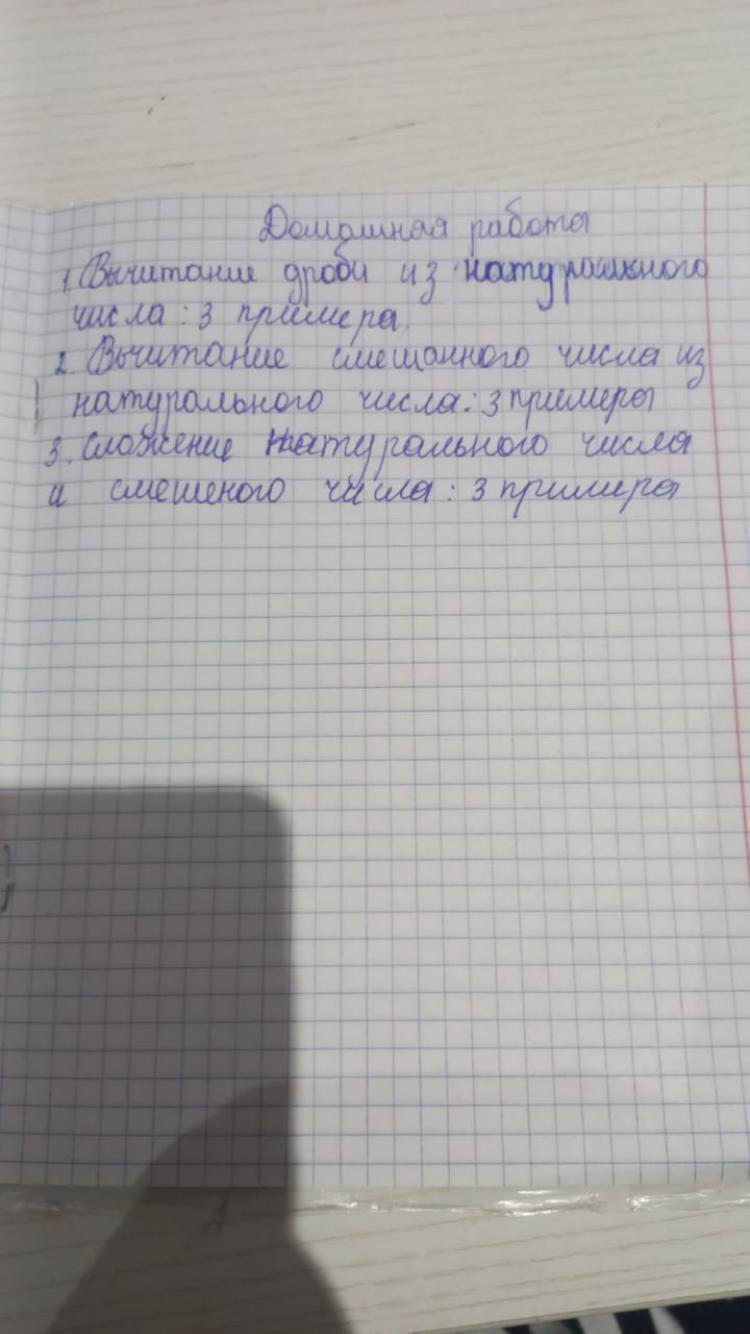 Домашная работа
1. Вычитание дроби из натурального
числа: 3 примера.
2. Вычитание смешанного числа из
натурального числа: 3 примера
3. Сложение натурального числа
и смешеного числа: 3 примера